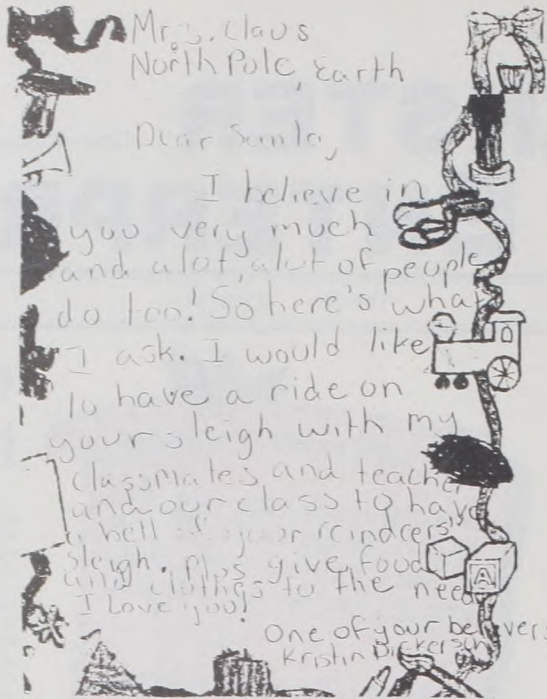 Mrs. Claus
North Pole, Earth
Dear Santa,
I believe in
you very much
and alot, alot of people
do too! So here's what
I ask. I would like
to have a ride on
your sleigh with my
classmates and teache
and our class to have
a bell your reindeers'
sleigh. Plus give food
and clothes to the need
I Love you!
One of your believers
Kristin Dickerson
A